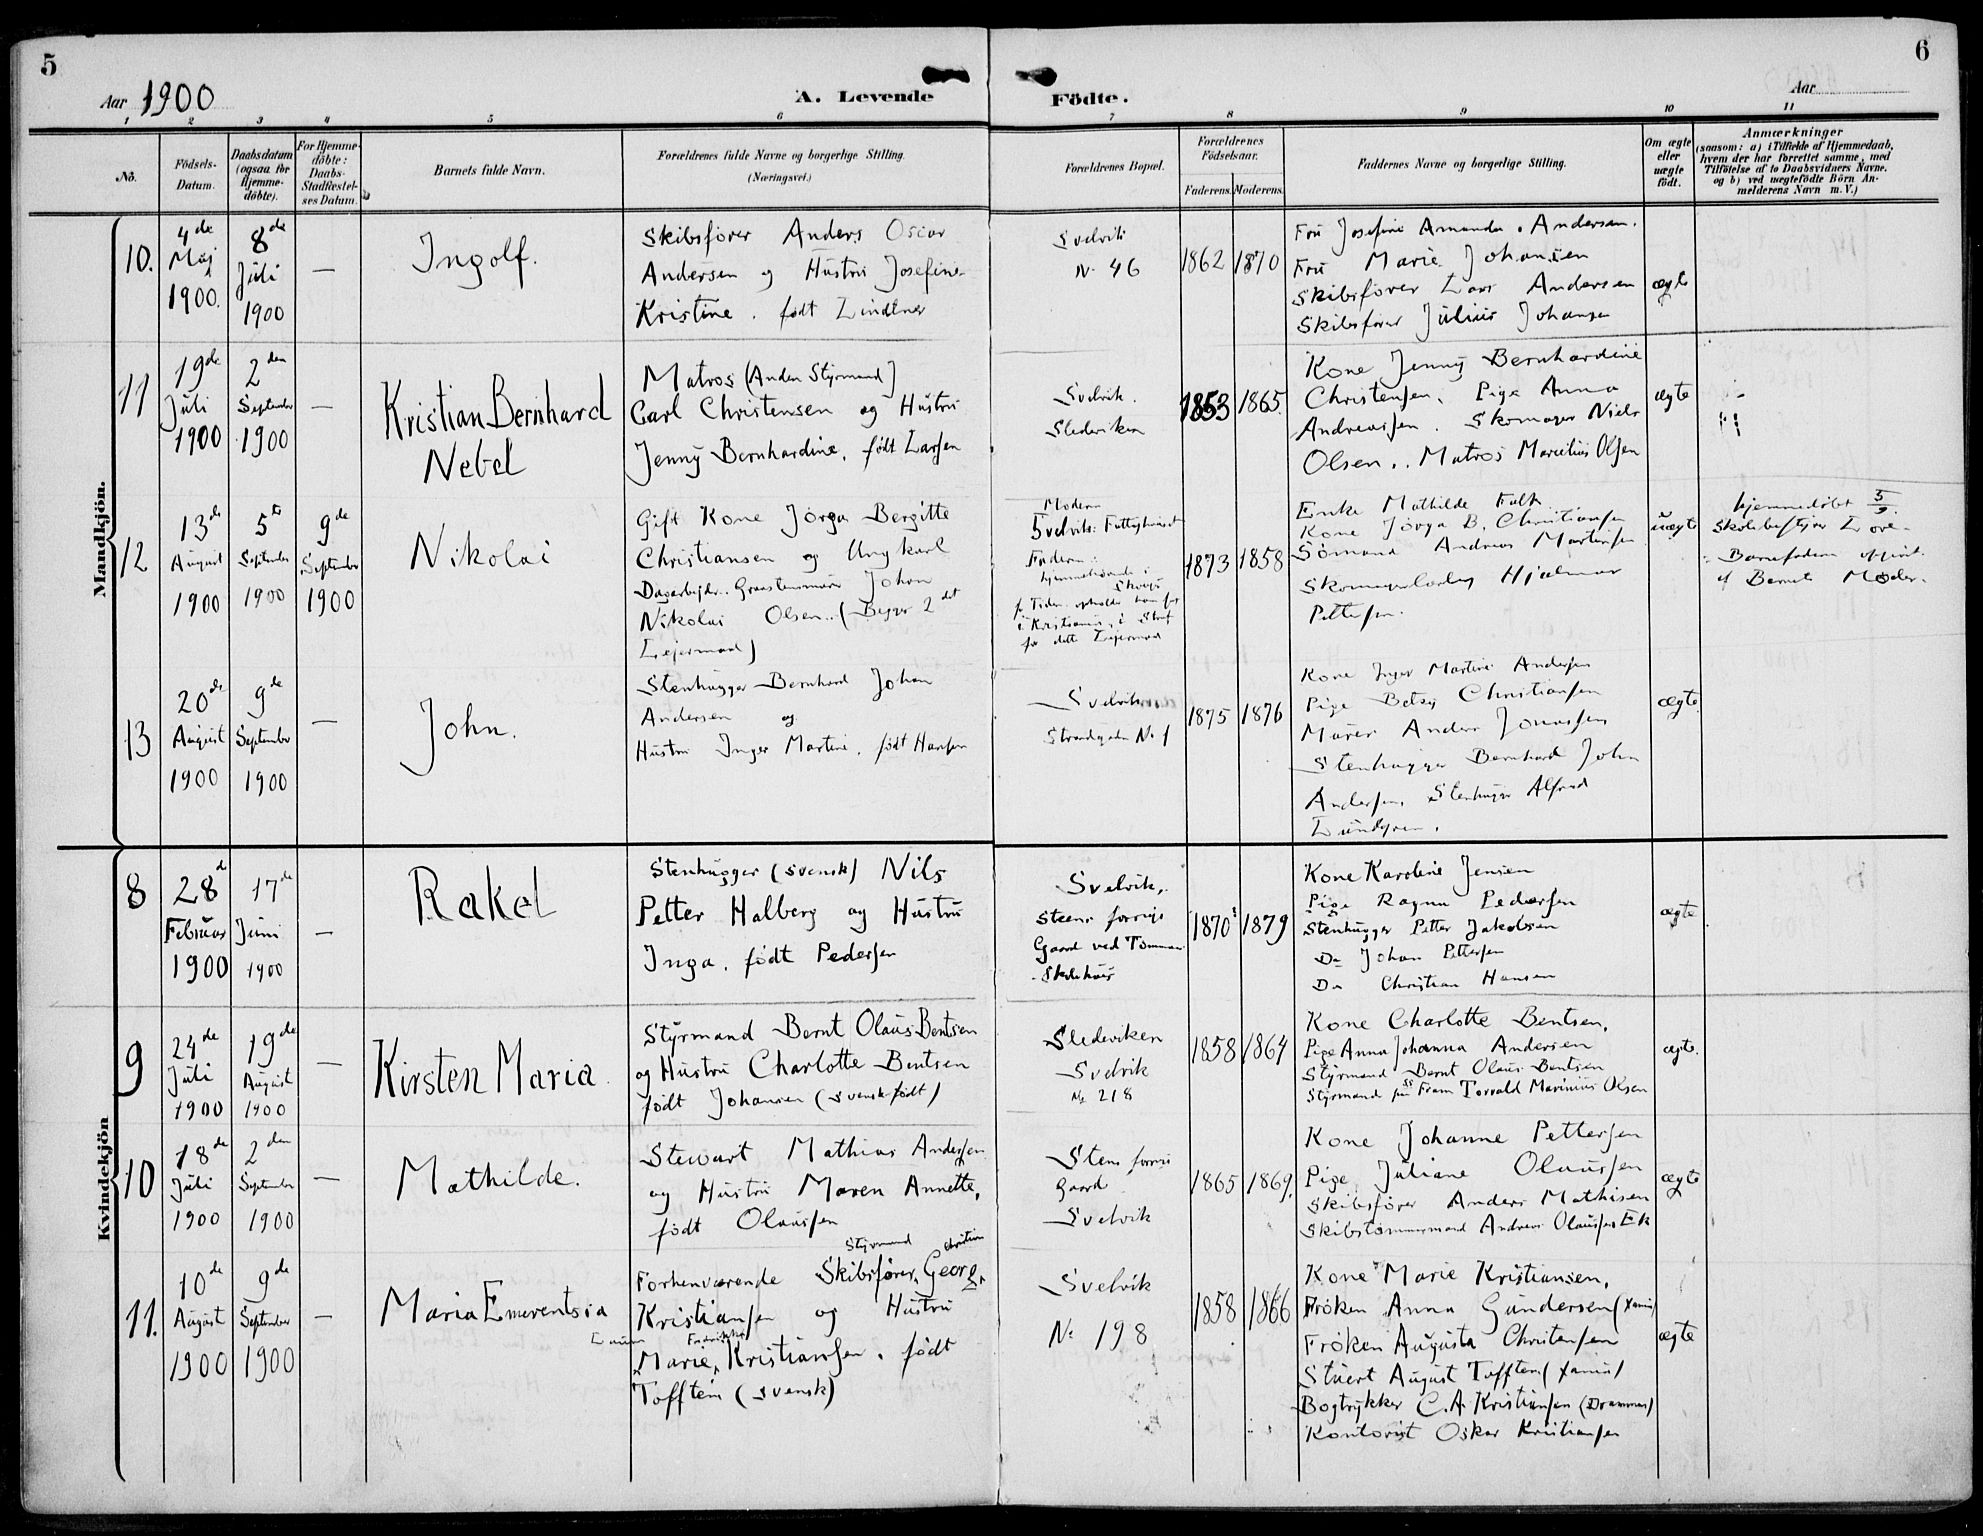 5
6
Aar 1900
A. Levende
Födte.
Aar
1 2 3 4 5 6 7 8 9 10 11
No.
Födsels-Datum.
Daabsdatum (ogsaa for Hjemme-döbte).
For Hjemme-döbte: Daabs-Stadfæstel-ses Datum.
Barnets fulde Navn.
Forældrenes fulde Navne og borgerlige Stilling.
(Næringsvei.)
Forældrenes Bopæl.
Forældrenes Födselsaar.
Faderens.
Moderens.
Faddernes Navne og borgerlige Stilling.
Om ægte eller uægte födt.
Anmærkninger
(saasom: a) i Tilfælde af Hjemmedaab,
hvem der har forrettet samme, med
Tilföielse af to Daabsvidners Navne,
og b) ved uægtefödte Börn An-
melderens Navn m. V.)
Mandkjön.
10.
4de Maj 1900.
8de Juli 1900
—
Ingolf.
Skibsfører Anders Oscar
Andersen og Hustru Josefine
Kristine. født Lindtner
Svelvik
N. 46
1862
1870
Fru Josefine Amanda Andersen.
Fru Marie Johansen
Skibsfører Lars Andersen
Skibsfører Julius Johansen
ægte
11
19de Juli 1900
2den September 1900
—
Kristian Bernhard
Nebel
Matros (Anden Styrmand)
Carl Christensen og Hustru
Jenny Bernhardine, født Larsen
Svelvik.
Sledeviken
1853
1865
Kone Jenny Bernhardine
Christensen, Pige Anna
Andreassen. Skomager Niels
Olsen.. Matros Marelius Olsen
ægte
12
13de August 1900
5te September 1900
9de September 1900
Nikolai
Gift Kone Jörga Bergitte
Christiansen og Ungkarl
Dagarbejder. Graastensmurer Johan
Nikolai Olsen.. (Begges 2det
Lejermaal)
Moderen
Svelvik: Fattighuset
Faderen:
hjemmehørende i
Skoger
i Kristiania, i Straf
for dette Lejermaal
1873
1858
Enke Mathilde Falk
Kone Jörga B. Christiansen
Sömand Andreas Martinsen
Hjalmar
Pettersen.
uægte
hjemmedøbt 5/9.
Skolebestyrer
Barnefaderen opgivet
af Barnets Moder.
13
20de August 1900
9de September 1900
—
John.
Stenhugger Bernhard Johan
Andersen og
Hustru Inger Martine, født Hansen
Svelvik
Strandgaden No 1
1875
1876
Kone Inger Martine Andersen
Pige Betsy Christiansen
Murer Anders Jonassen
Stenhugger Bernhard John
Andersen, Stenhugger Alfred
Lundgren.
ægte.
Kvindekjön
8
28de Februar 1900
17de Juni 1900
—
Rakel
Stenhugger (svensk) Nils
Petter Halberg og Hustru
Inga, født Pedersen
Svelvik,
Steens forrige
Gaard ved Tømmer
Skolehus
1870
1879
Kone Karoline Jensen
Pige Ragna Pedersen
Stenhugger Petter Jakobsen
Do Johan Pettersen
Do Christian Hansen
ægte
9
24de Juli 1900
19de August 1900
—
Kirsten Maria
Styrmand Bernt Olaus Bentsen
og Hustru Charlotte Bentsen
født Johansen (svensk født)
Sledeviken
Svelvik
No 218
1858
1864
Kone Charlotte Bentsen,
Pige Anna Johanna Andersen
Styrmand Bernt Olaus Bentsen
Styrmand paa SS Fram Torvald Marinius Olsen
ægte.
10
18de Juli 1900
2den September 1900
—
Mathilde.
Stewart Mathias Andersen
og Hustru Maren Annette,
født Olaussen
Stens forrige
Gaard
Svelvik
1865
1869.
Kone Johanne Pettersen
Pige Juliane Olaussen
Skibsfører Anders Mathisen
Skibstømmermand Andreas Olaussen Ek
ægte
11.
10de August 1900
9de September 1900
—
Maria Emerentsia
Styrmand Christian
Forhenværende Skibsfører, Georg,
Kristiansen og Hustru
Emma Fredrikke
Marie, Kristiansen. født
Tofften (svensk)
Svelvik
No 198
1858
1866
Kone Marie Kristiansen,
Frøken Anna Gundersen
Frøken Augusta Christensen
Stuert August Tofften
Bogtrykker C. A. Kristiansen (Drammen)
Kontorist Oskar Kristiansen
ægte